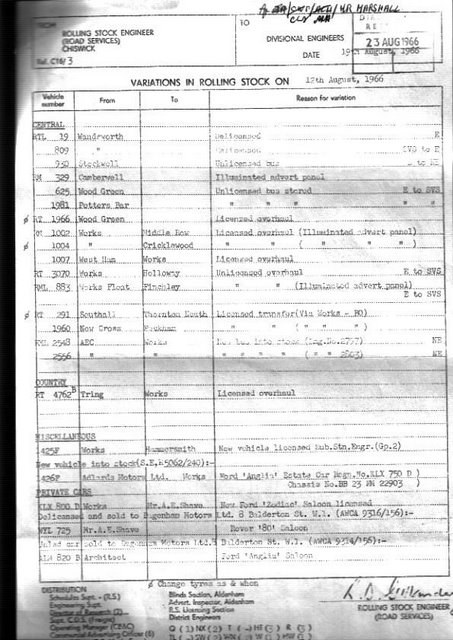 MR MARSHALL
FROM
ROLLING STOCK ENGINEER
(ROAD SERVICES)
CHISWICK
Ref. C16/3
TO
DIVISIONAL ENGINEERS
DATE 19th August, 1966
23 AUG 1966
VARIATIONS IN ROLLING STOCK ON 12th August, 1966
Vehicle number From To Reason for variation
CENTRAL
RTL 19 Wandsworth Delicensed E
809 " SVS to E
950 Stockwell Unlicensed bus
RM 329 Camberwell Illuminated advert panel
625 Wood Green Unlicensed bus stored E to SVS
1981 Potters Bar " " " "
ø RT 1966 Wood Green Licensed overhaul
RM 1002 Works Middle Row Licensed overhaul (Illuminated advert panel)
ø 1004 " Cricklewood " " ( " " " )
1007 West Ham Works Licensed overhaul
RT 3070 Works Holloway Unlicensed overhaul E to SVS
RML 883 Works Float Finchley " " (Illuminated advert panel)
E to SVS
ø RT 291 Southall Thornton Heath Licensed transfer(Via Works - BO)
1960 New Cross Peckham " " ( " " " )
RML 2548 AEC Works New bus into stock (Eng.No.2757) NE
2556 " " " " " " ( " " 2803) NE
COUNTRY
RT 4762 B Tring Works Licensed overhaul
MISCELLANEOUS
425F Works Hammersmith New vehicle licensed Sub.Stn.Engr.(Gp.2)
New vehicle into stock(S.E.L5062/240):-
426F Adlards Motors Ltd. Works Ford 'Anglia' Estate Car Regn.No.KLX 750 D
Chassis No.BB 23 MM 22903 )
PRIVATE CARS
KLX 800 D Works Mr.A.E.Shave New Ford 'Zodiac' Saloon licensed
Delicensed and sold to Dagenham Motors Ltd. 8 Balderton St. W.1. (AWCA 9316/156):-
Mr.A.E.Shave Rover '80' Saloon
car sold to Dagenham Motors Ltd.8 Balderton St. W.1. (AWCA 9314/156):-
820 B Architect Ford 'Anglia' Saloon
ø Change tyres as & when
DISTRIBUTION
Schedules Supt. - (R.S.)
Engineering Supt.
Director of Research (2)
Supt. C.D.S. (Freight)
Operating Manager (CE&C)
Commercial Advertising Officer (6)
Blinds Section, Aldenham
Advert. Inspector, Aldenham
R.S. Licensing Section
District Engineers
ROLLING STOCK ENGINEER
(ROAD SERVICES)